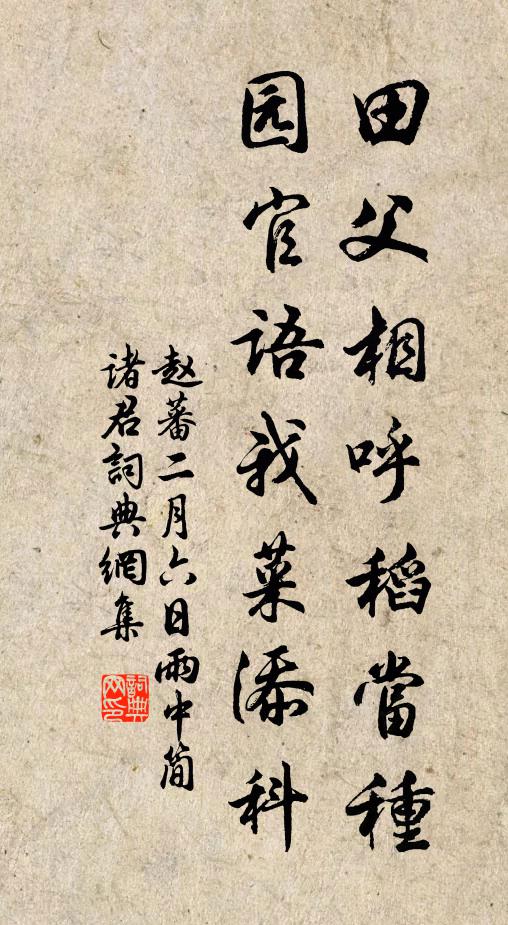 田父相呼稻當種
园官语我菜添科
赵蕃二月六日雨中简
诸君詞典網集
詞典网印